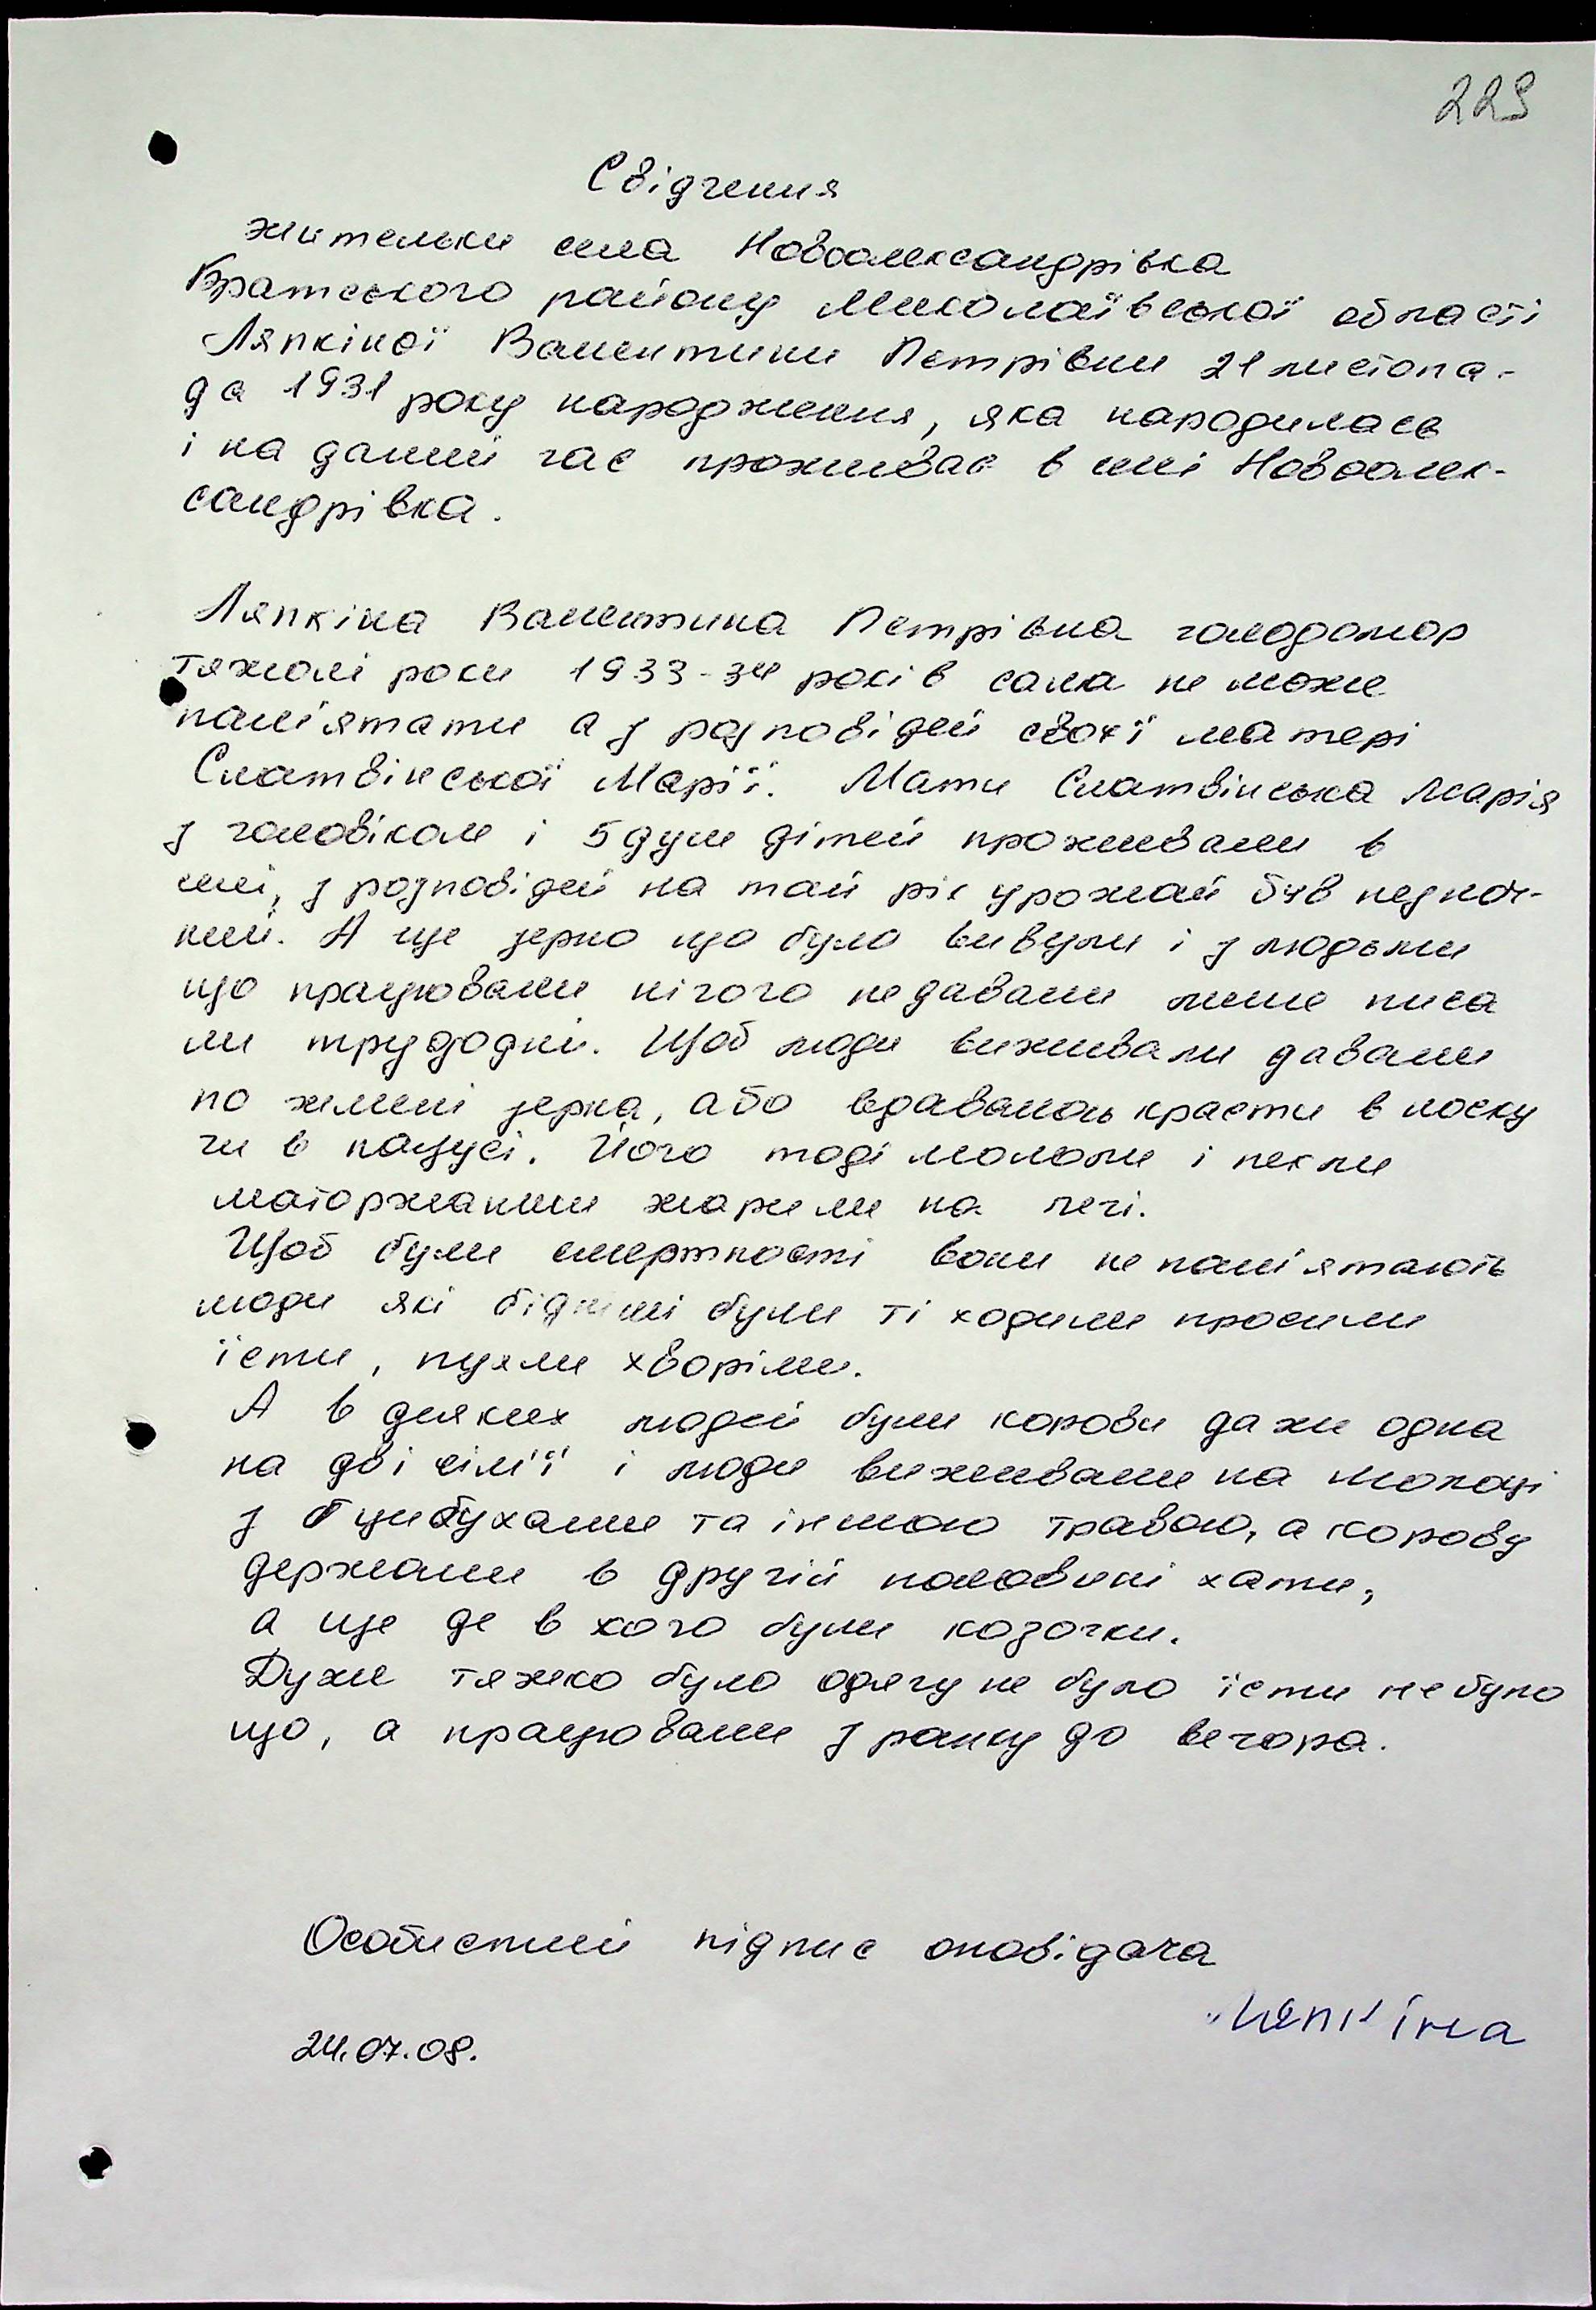 229
Свідчення
жительки села Новоолександрівка
Братського району Миколаївської області
Ляпкіної Валентини Петрівни 21 листопа-
да 1931 року народження, яка народилась
і на даний час проживає в селі Новоолек-
сандрівка.
Ляпкіна Валентина Петрівна голодомор
тяжолі роки 1933-34 років сама не може
пам'ятати а з розповідей своєї матері
Слатвінської Марії. Мати Слатвінська Марія
з чоловіком і 5 душ дітей проживали в
селі, з розповідей на той рік урожай був
ний. А ще зерно що було вивезли і з людьми
що працювали нічого не давали лише писа
ли трудодні. Щоб люди виживали давали
по жмені зерна, або вдавалось красти в носку
чи в пазусі. Його тоді мололи і пекли
маторжаники жарили на печі.
Щоб були смертності вони не пам'ятають
люди які бідніші були ті ходили просили
їсти, пухли хворіли.
А в деяких людей були корови даже одна
на дві сім'ї і люди виживали на молоці
з бцибухами та іншою травою, а корову
держали в другій половині хати,
а ще де в кого були козочки.
Дуже тяжко було одягу не було їсти не було
що, а працювали з ранку до вечора.
Особистий підпис оповідача
Ляпкіна
24.07.08.